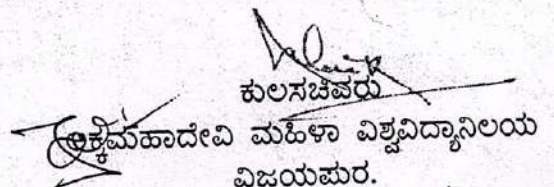 ಕುಲಸಚಿವರು
ಅಕ್ಕಮಹಾದೇವಿ ಮಹಿಳಾ ವಿಶ್ವವಿದ್ಯಾನಿಲಯ
ವಿಜಯಪುರ.